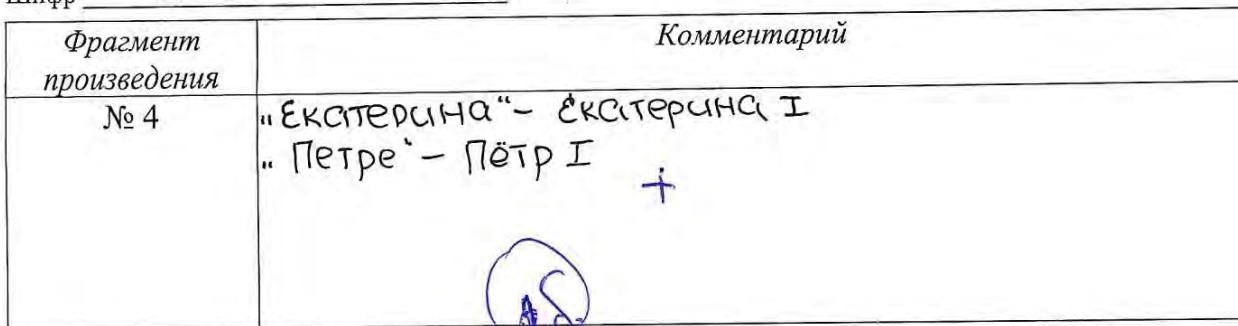 Шифр
Фрагмент произведения
Комментарий
№ 4
„Екатерина“ – Екатерина I
„Петре“ – Пётр I
+